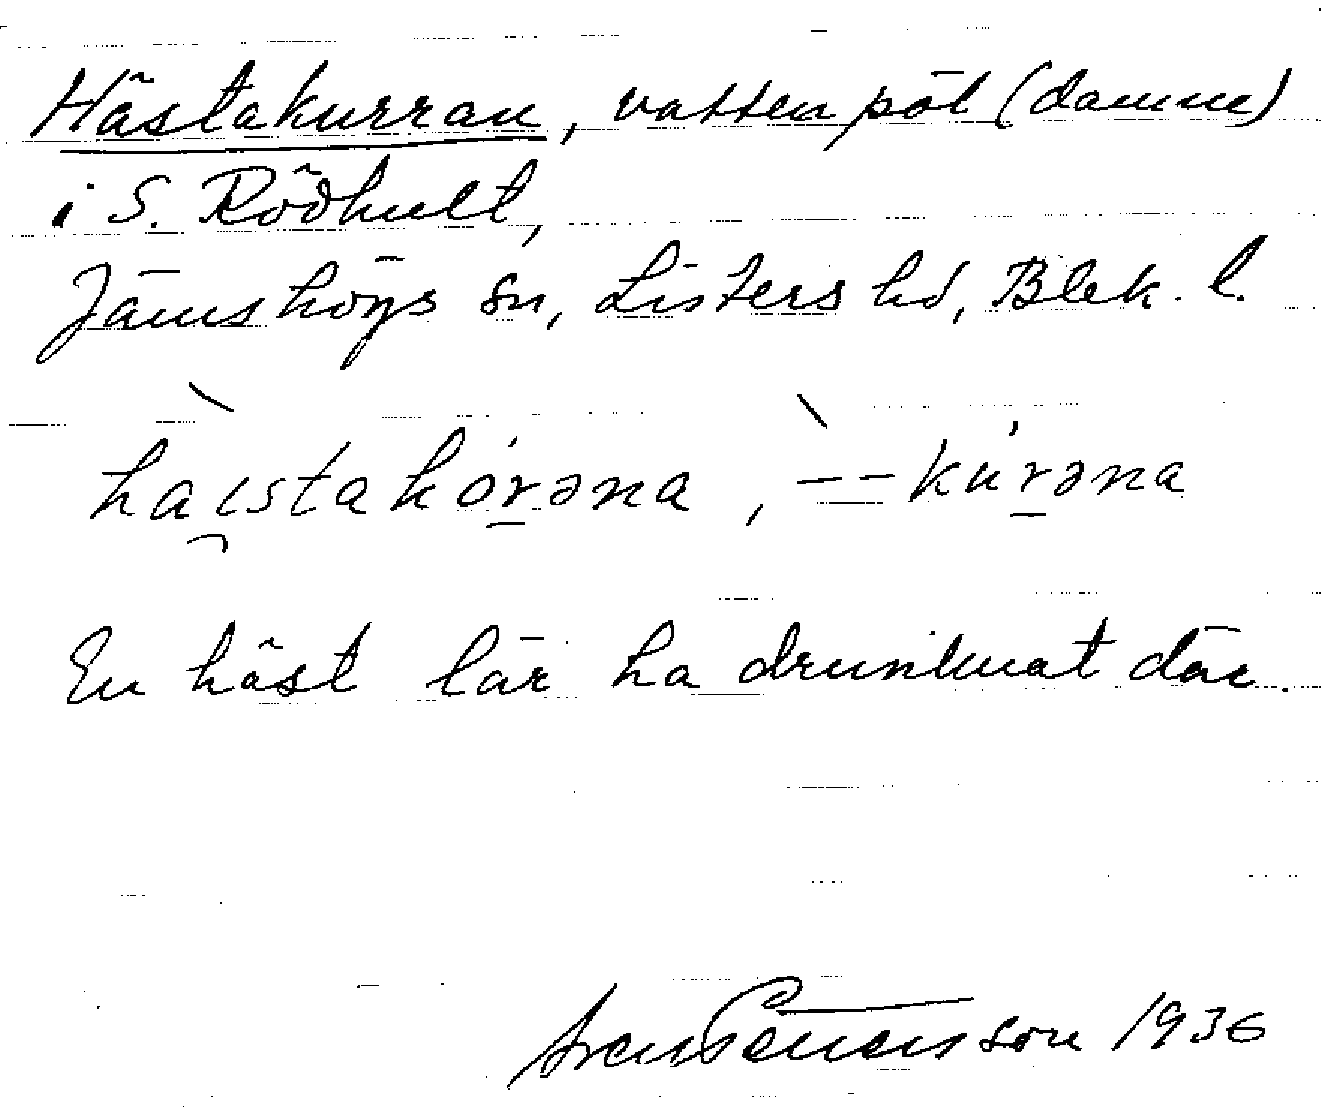 Hästakurran, vattenpöl (damm)
i S. Rödhult,
Jämshögs sn, Listers hd, Blek. l.
haistakórəna, -- kúrəna
En häst lär ha drunknat där.
Sven Benson 1936